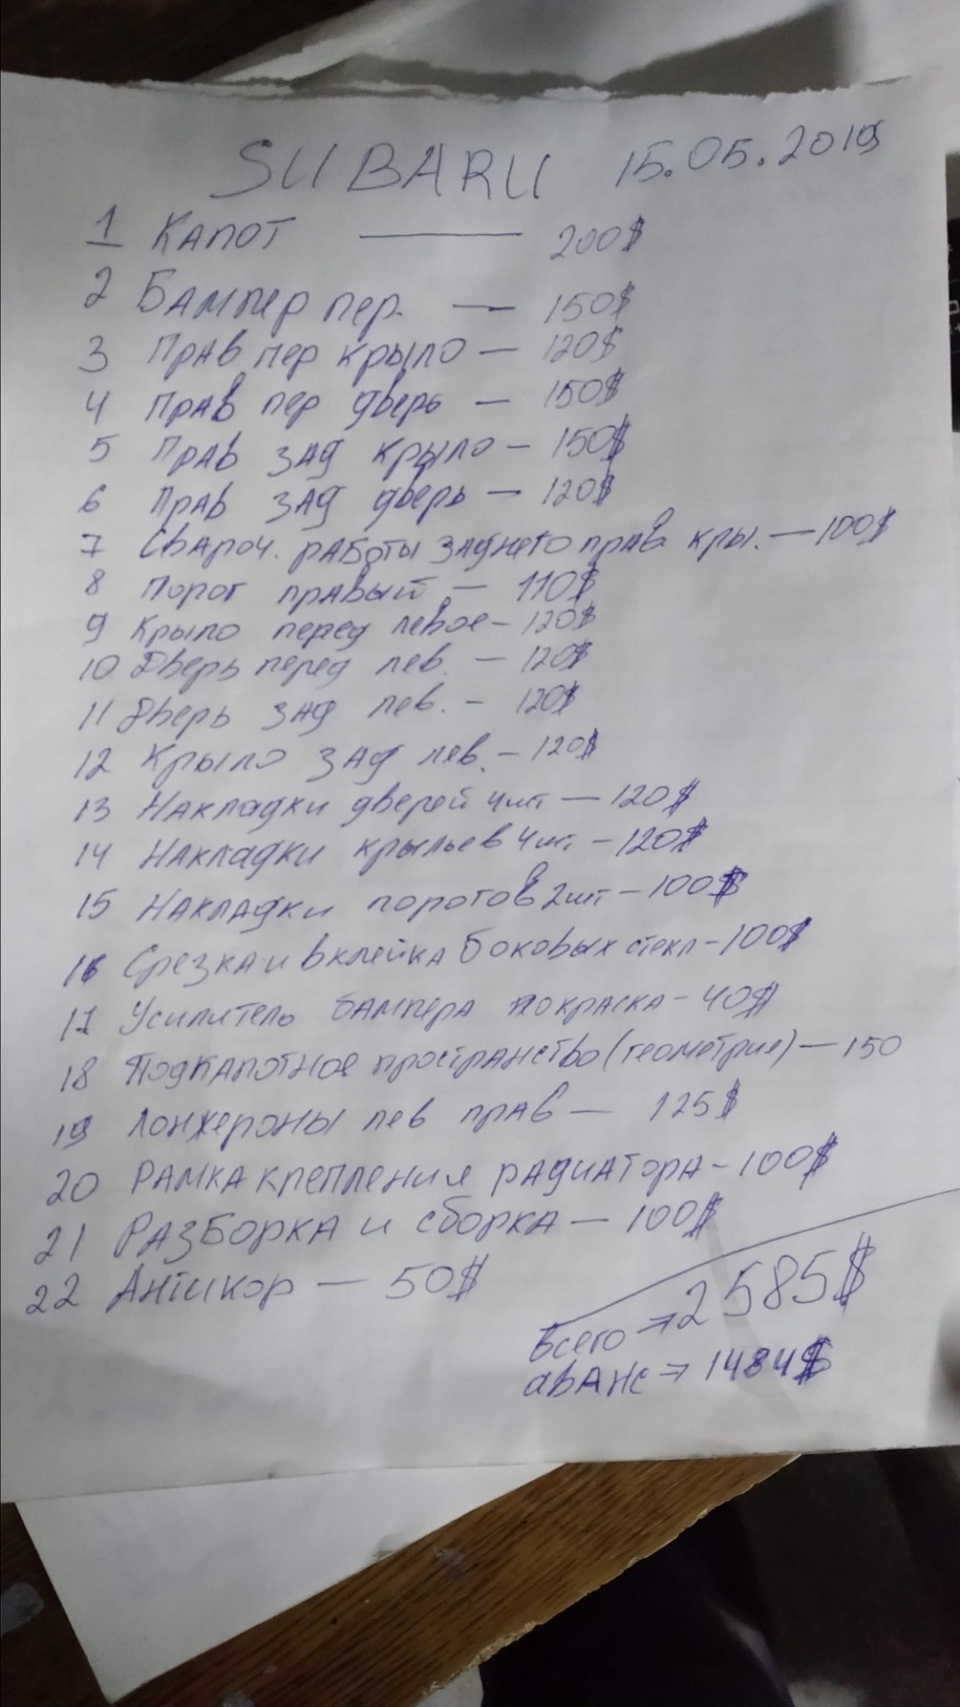 SUBARU 15.05.2019
1 Капот — 200$
2 Бампер пер. — 150$
3 Прав пер крыло — 120$
4 Прав пер дверь — 150$
5 Прав зад крыло — 150$
6 Прав зад дверь — 120$
7 Свароч. работы заднего прав кры. — 100$
8 Порог правый — 110$
9 Крыло перед левое — 120$
10 Дверь перед лев. — 120$
11 Дверь зад лев. — 120$
12 Крыло зад лев. — 120$
13 Накладки дверей 4шт — 120$
14 Накладки крыльев 4шт. — 120$
15 Накладки порогов 2шт — 100$
16 Срезка и вклейка боковых стекл — 100$
17 Усилитель бампера покраска — 40$
18 Подкапотное пространство (геометрия) — 150
19 Лонжероны лев прав — 125$
20 Рамка крепления радиатора — 100$
21 Разборка и сборка — 100$
22 Антикор — 50$
Всего → 2585$
аванс → 1484$